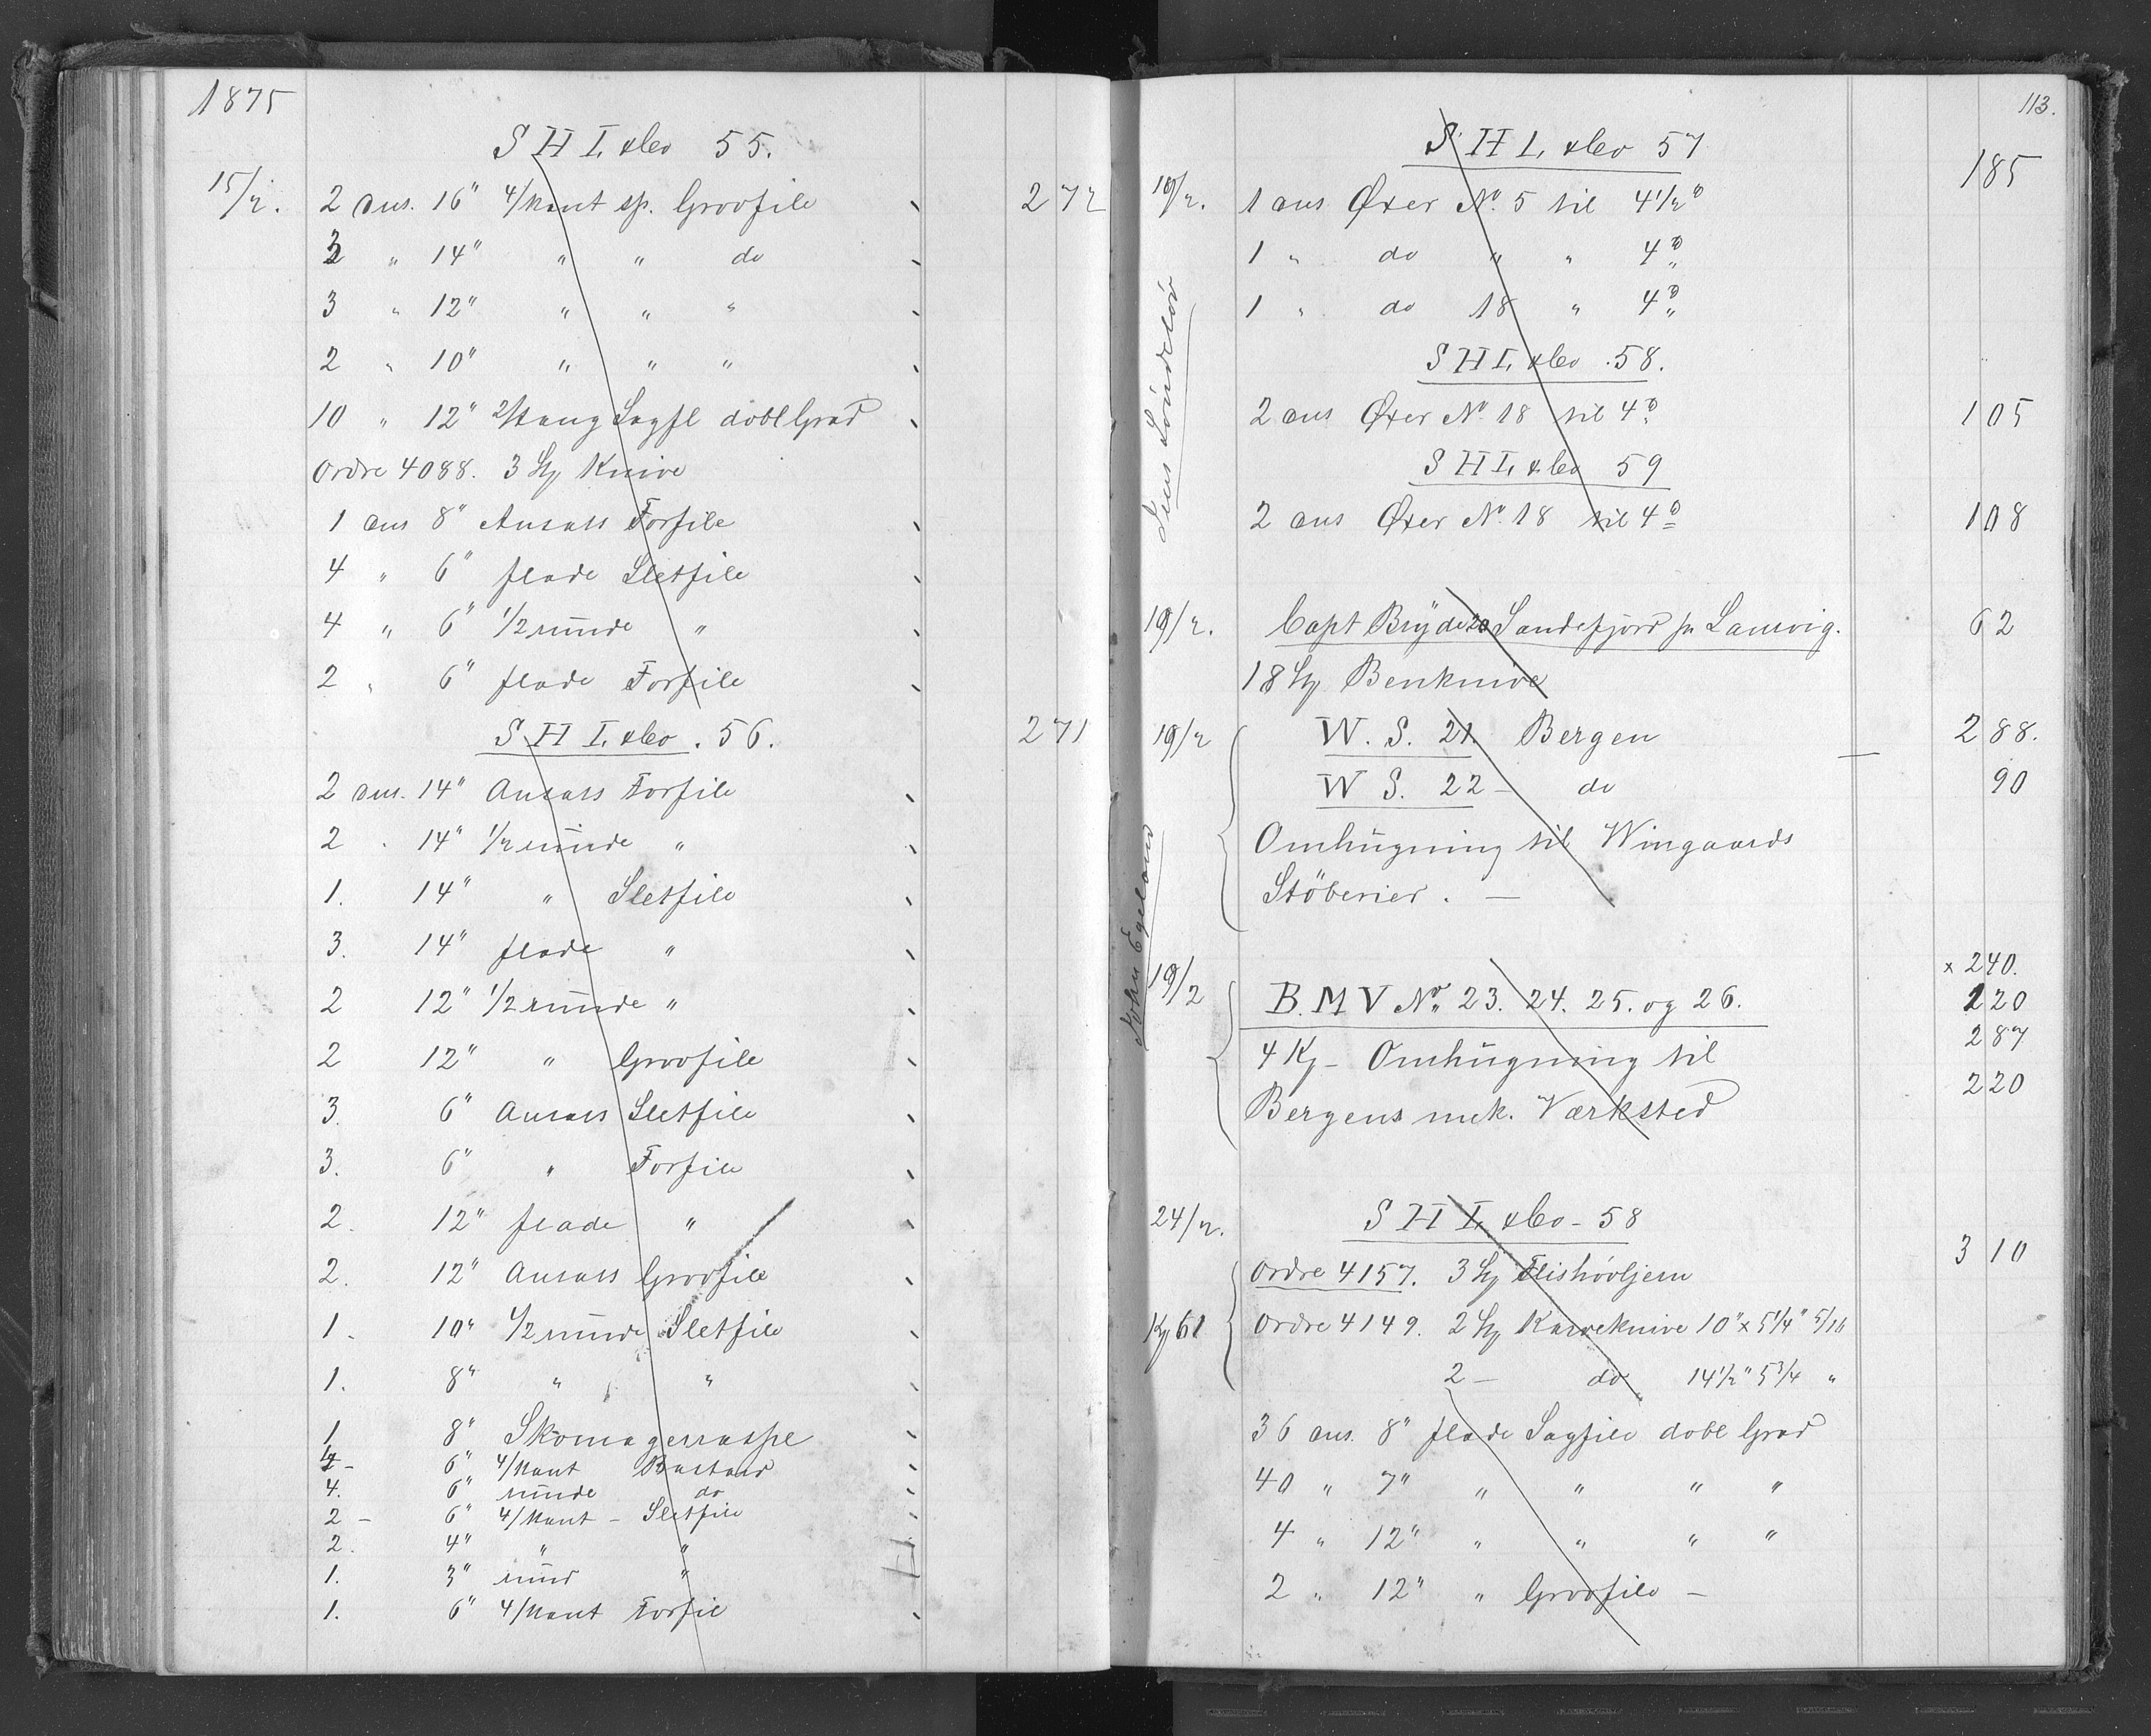 1875
S H I, & Co 55.
15/2. 2 dus. 16" 4/kant sp. Groofile 272
3 " 14" " " do
3 " 12" " " "
2 " 10" " " "
10 " 12" 2/kang Sagfl dobl Grad
Ordre 4088. 3 Kg Knive
1 dus 8" Ansats Forfile
4 " 6" flade Sletfile
4 " 6" 1/2 runde "
2 " 6" flade Forfile
S H I, & Co . 56. 271
2 dus. 14" Ansats Forfile
2 " 14" 1/2 runde "
1. 14" " Sletfile
3. 14" flade "
2 12" 1/2 runde "
2 12" " Groofile
3. 6" Ansats Sletfile
3. 6" " Forfile
2. 12" flade "
2. 12" Ansats Groofile
1. 10" 1/2 runde Sletfile
1. 8" " "
1 8" Skomagerraspe
4 - 6" 4/kant Bastard
4. 6" runde do
2 - 6" 4/kant - Sletfile
2. 4" " "
1. 3" rund "
1. 6" 4/kant Forfil
113.
S H I, & Co 57
185
19/2. 1 dus Øxer No. 5 til 4 1/2 D
1 " do " " 4 D
1 " do 18 " 4 D
S H I, & Co . 58.
2 dus Øxer No. 18 til 4 D 105
S H I, & Co 59
2 dus Øxer No. 18 til 4 D 108
Jens Löndelöv
19/2. Capt Bryde Sandefjord pr Laurvig. 62
18 Kg Benknive
19/2 W. S. 21. Bergen 288.
W S. 22 - do 90
Omhugning til Wingaards
Stöberier. -
John Egeland
19/2 B. M V No. 23. 24. 25. og 26.
x 240.
220
287
220
4 Kg - Omhugning til
Bergens mek. Værksted
24/2. S H I, & Co - 58
310
Ordre 4157. 3 Kg Flishövljern
Kg 61 Ordre 4149. 2 Kg Karveknive 10" x 5 1/4" 5/16
2 - do 14 1/2" 5 3/4 "
36 dus. 8" flade Sagfile dobl Grad
40 " 7" " " " "
4 " 12" " " " "
2 " 12" " Groofile -